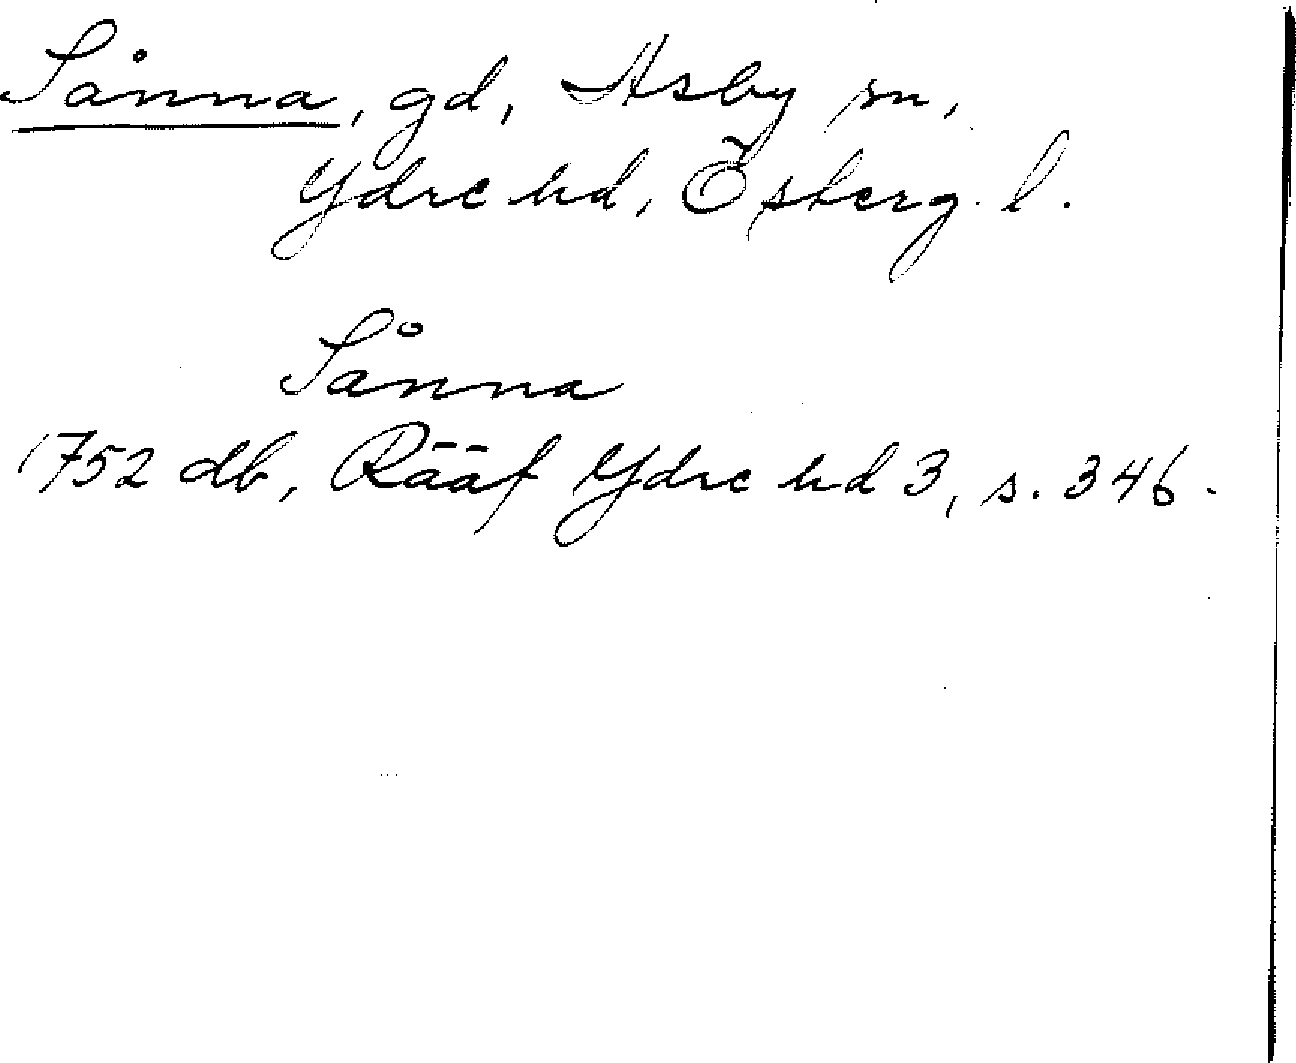 Sånna, gd, Asby sn,
Ydre hd, Östergl.
Sånna
1752 db, Rääf Ydre hd 3, s. 346.